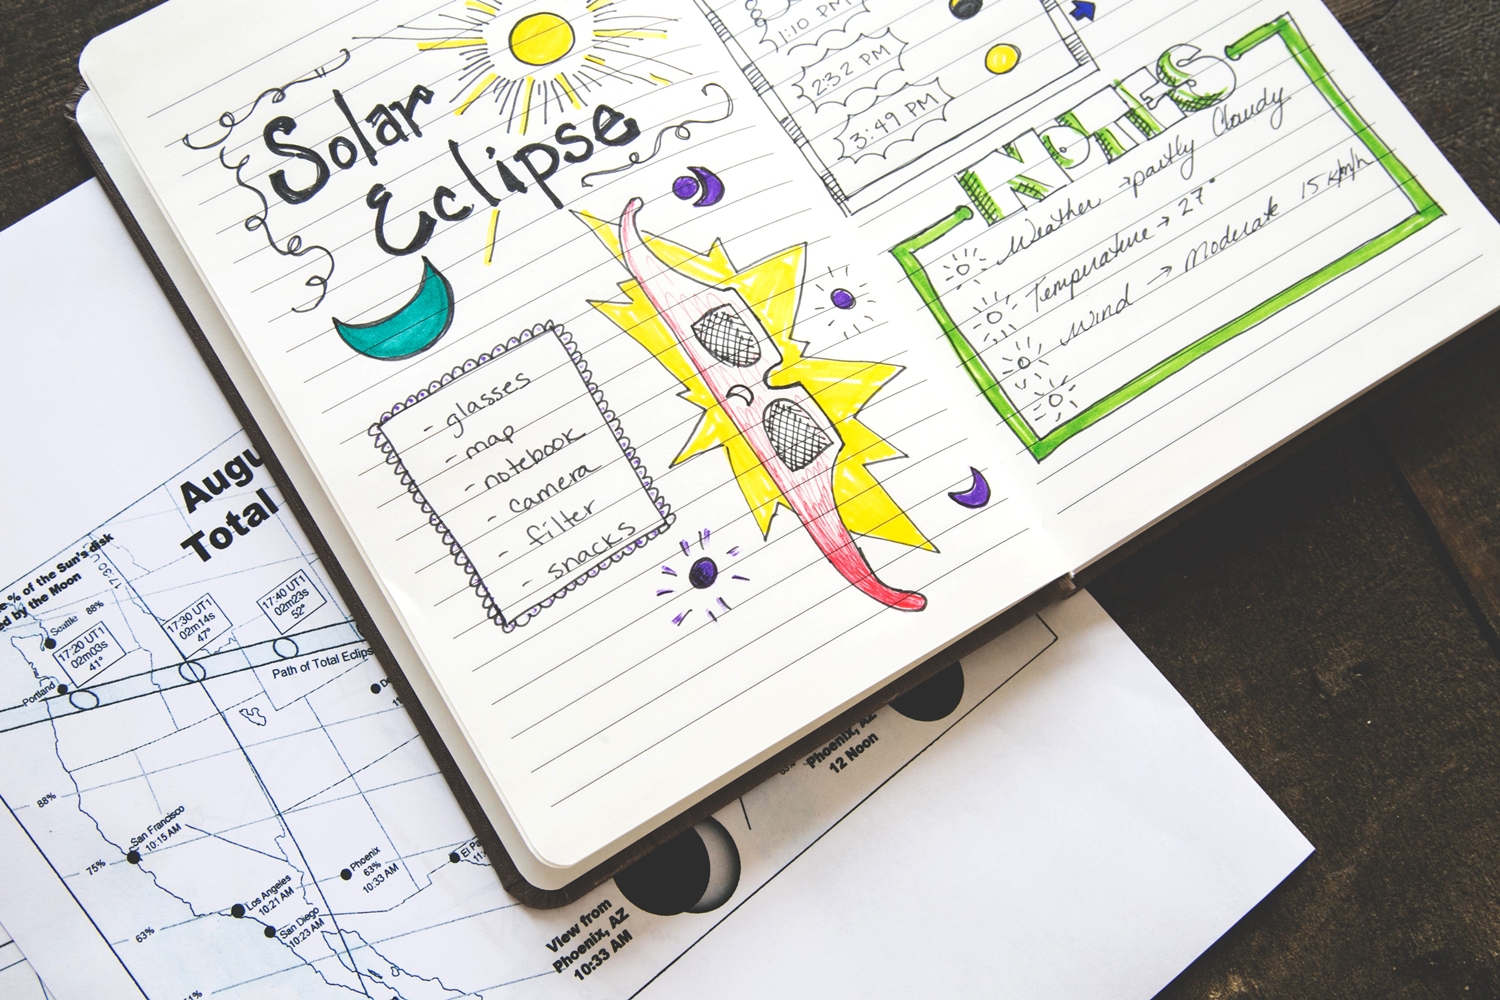 Solar
Eclipse
- glasses
- map
- notebook
- camera
- filter
- snacks
1:10 PM
2:32 PM
3:49 PM
NOTES
Weather → partly Cloudy
Temperature → 27°
Wind → Moderate 15 km/h
Augu
Total
% of the Sun's disk
ed by the Moon
17:30
Seattle 88%
17:20 UT1
02m03s
41°
17:30 UT1
02m14s
47°
17:40 UT1
02m23s
52°
Portland
Path of Total Eclips
88%
San Francisco
10:15 AM
75%
Phoenix
63%
10:33 AM
El Pa
Los Angeles
10:21 AM
San Diego
10:23 AM
63%
Phoenix, AZ
12 Noon
View from
Phoenix, AZ
10:33 AM